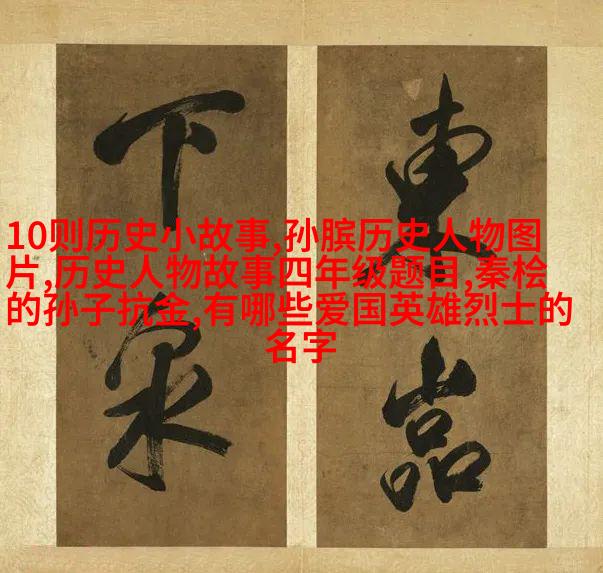 東嵓
下泉
10则历史小故事,孙膑历史人物图
片,历史人物故事四年级题目,秦桧
的孙子抗金,有哪些爱国英雄烈士的
名字